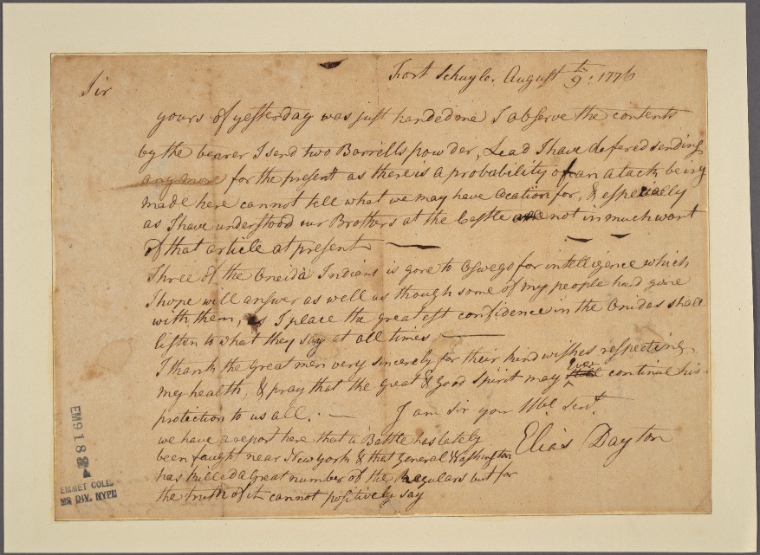 Fort Schuyler August 9th: 1776
Sir
yours of yesterday was just handed me I observe the contents
by the bearer I send two Barrells powder, Lead I have defered sending
any more for the present as there is a probability of an atack being
made here cannot tell what we may have ocation for, & especially
as I have understood our Brothers at the Castle are not in much want
of that article at present
Three of the Oneida Indians is gone to Oswego for intelligence which
I hope will answer as well as though some of my people had gone
with them, as I place the greatest confidence in the Onidas shall
listen to what they say at all times
I thank the great men very sincerely for their kind wishes respecting
my health, & pray that the great & good Spirit may ever continue his
protection to us all. I am sir your Hbl Servt.
Elias Dayton
we have a report here that a Battle has lately
been faught near New york & that General Washington
has killed a great number of the Regulars but for
the truth of it cannot positively say
EM918
EMMET COLL.
MS DIV. NYPL